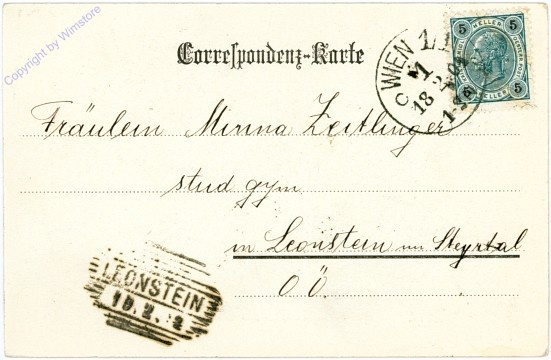 Copyright by Wimstore
Correspondenz-Karte
WIEN 1/1
C M
18
5 HELLER 5
5 HELLER 5
Fräulein Minna Zeitlinger
stud gym
in Leonstein im Steyrtal
OÖ.
LEONSTEIN